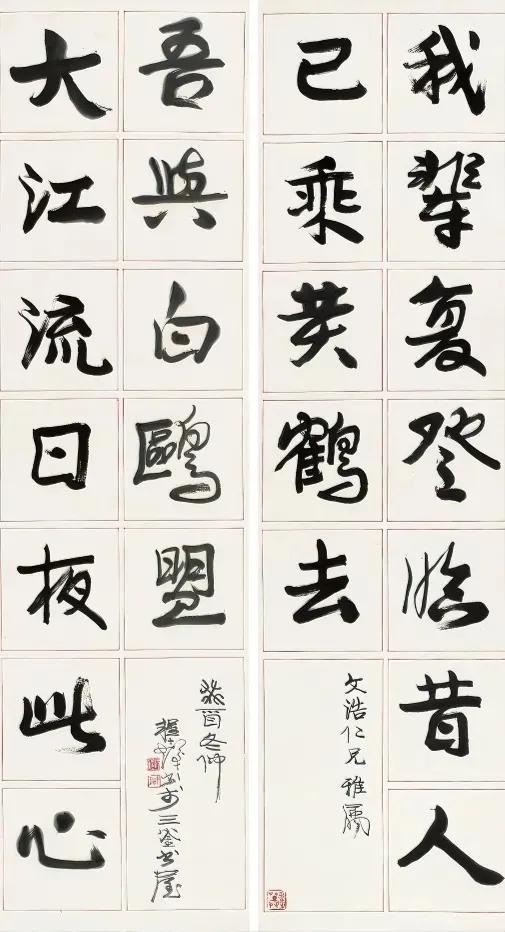 我輩复登臨昔人
已乘黄鶴去
文浩仁兄雅屬
大江流日夜此心
吾與白鷗盟
癸酉冬仲
三釜書屋